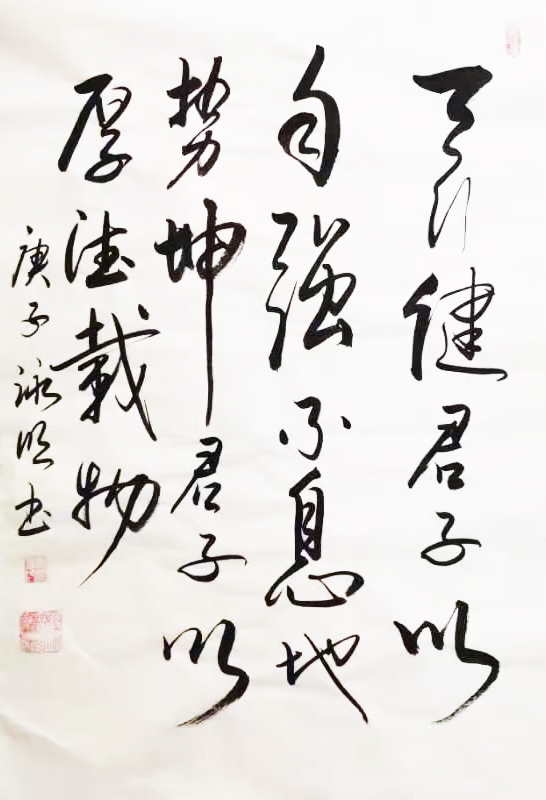 天行健君子以
自强不息地
势坤君子以
厚德载物
庚子詠明书